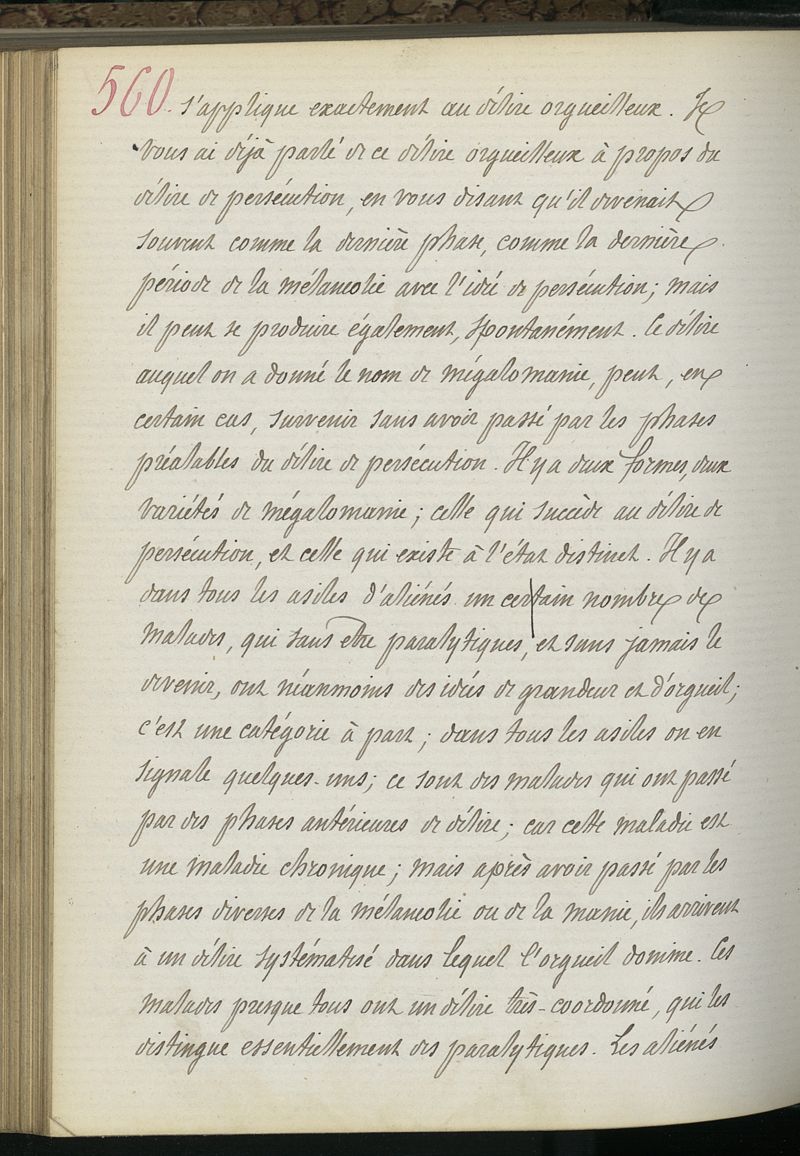 560. s'applique exactement au délire orgueilleux. Je
vous ai déjà parlé de ce délire orgueilleux à propos du
délire de persécution, en vous disant qu'il devenait
souvent comme la dernière phase, comme la dernière
période de la mélancolie avec l'idée de persécution; mais
il peut se produire également, spontanément. Ce délire
auquel on a donné le nom de mégalomanie, peut, en
certain cas, survenir sans avoir passé par les phases
préalables du délire de persécution. Il y a deux formes, deux
variétés de mégalomanie; celle qui succède au délire de
persécution, et celle qui existe à l'état distinct. Il y a
dans tous les asiles d'aliénés un certain nombre de
malades, qui sans être paralytiques, et sans jamais le
devenir, ont néanmoins des idées de grandeur et d'orgueil;
c'est une catégorie à part; dans tous les asiles on en
signale quelques-uns; ce sont des malades qui ont passé
par des phases antérieures de délire; car cette maladie est
une maladie chronique; mais après avoir passé par les
phases diverses de la mélancolie ou de la manie, ils arrivent
à un délire systématisé dans lequel l'orgueil domine. Ces
malades presque tous ont un délire très-coordonné, qui les
distingue essentiellement des paralytiques. Les aliénés